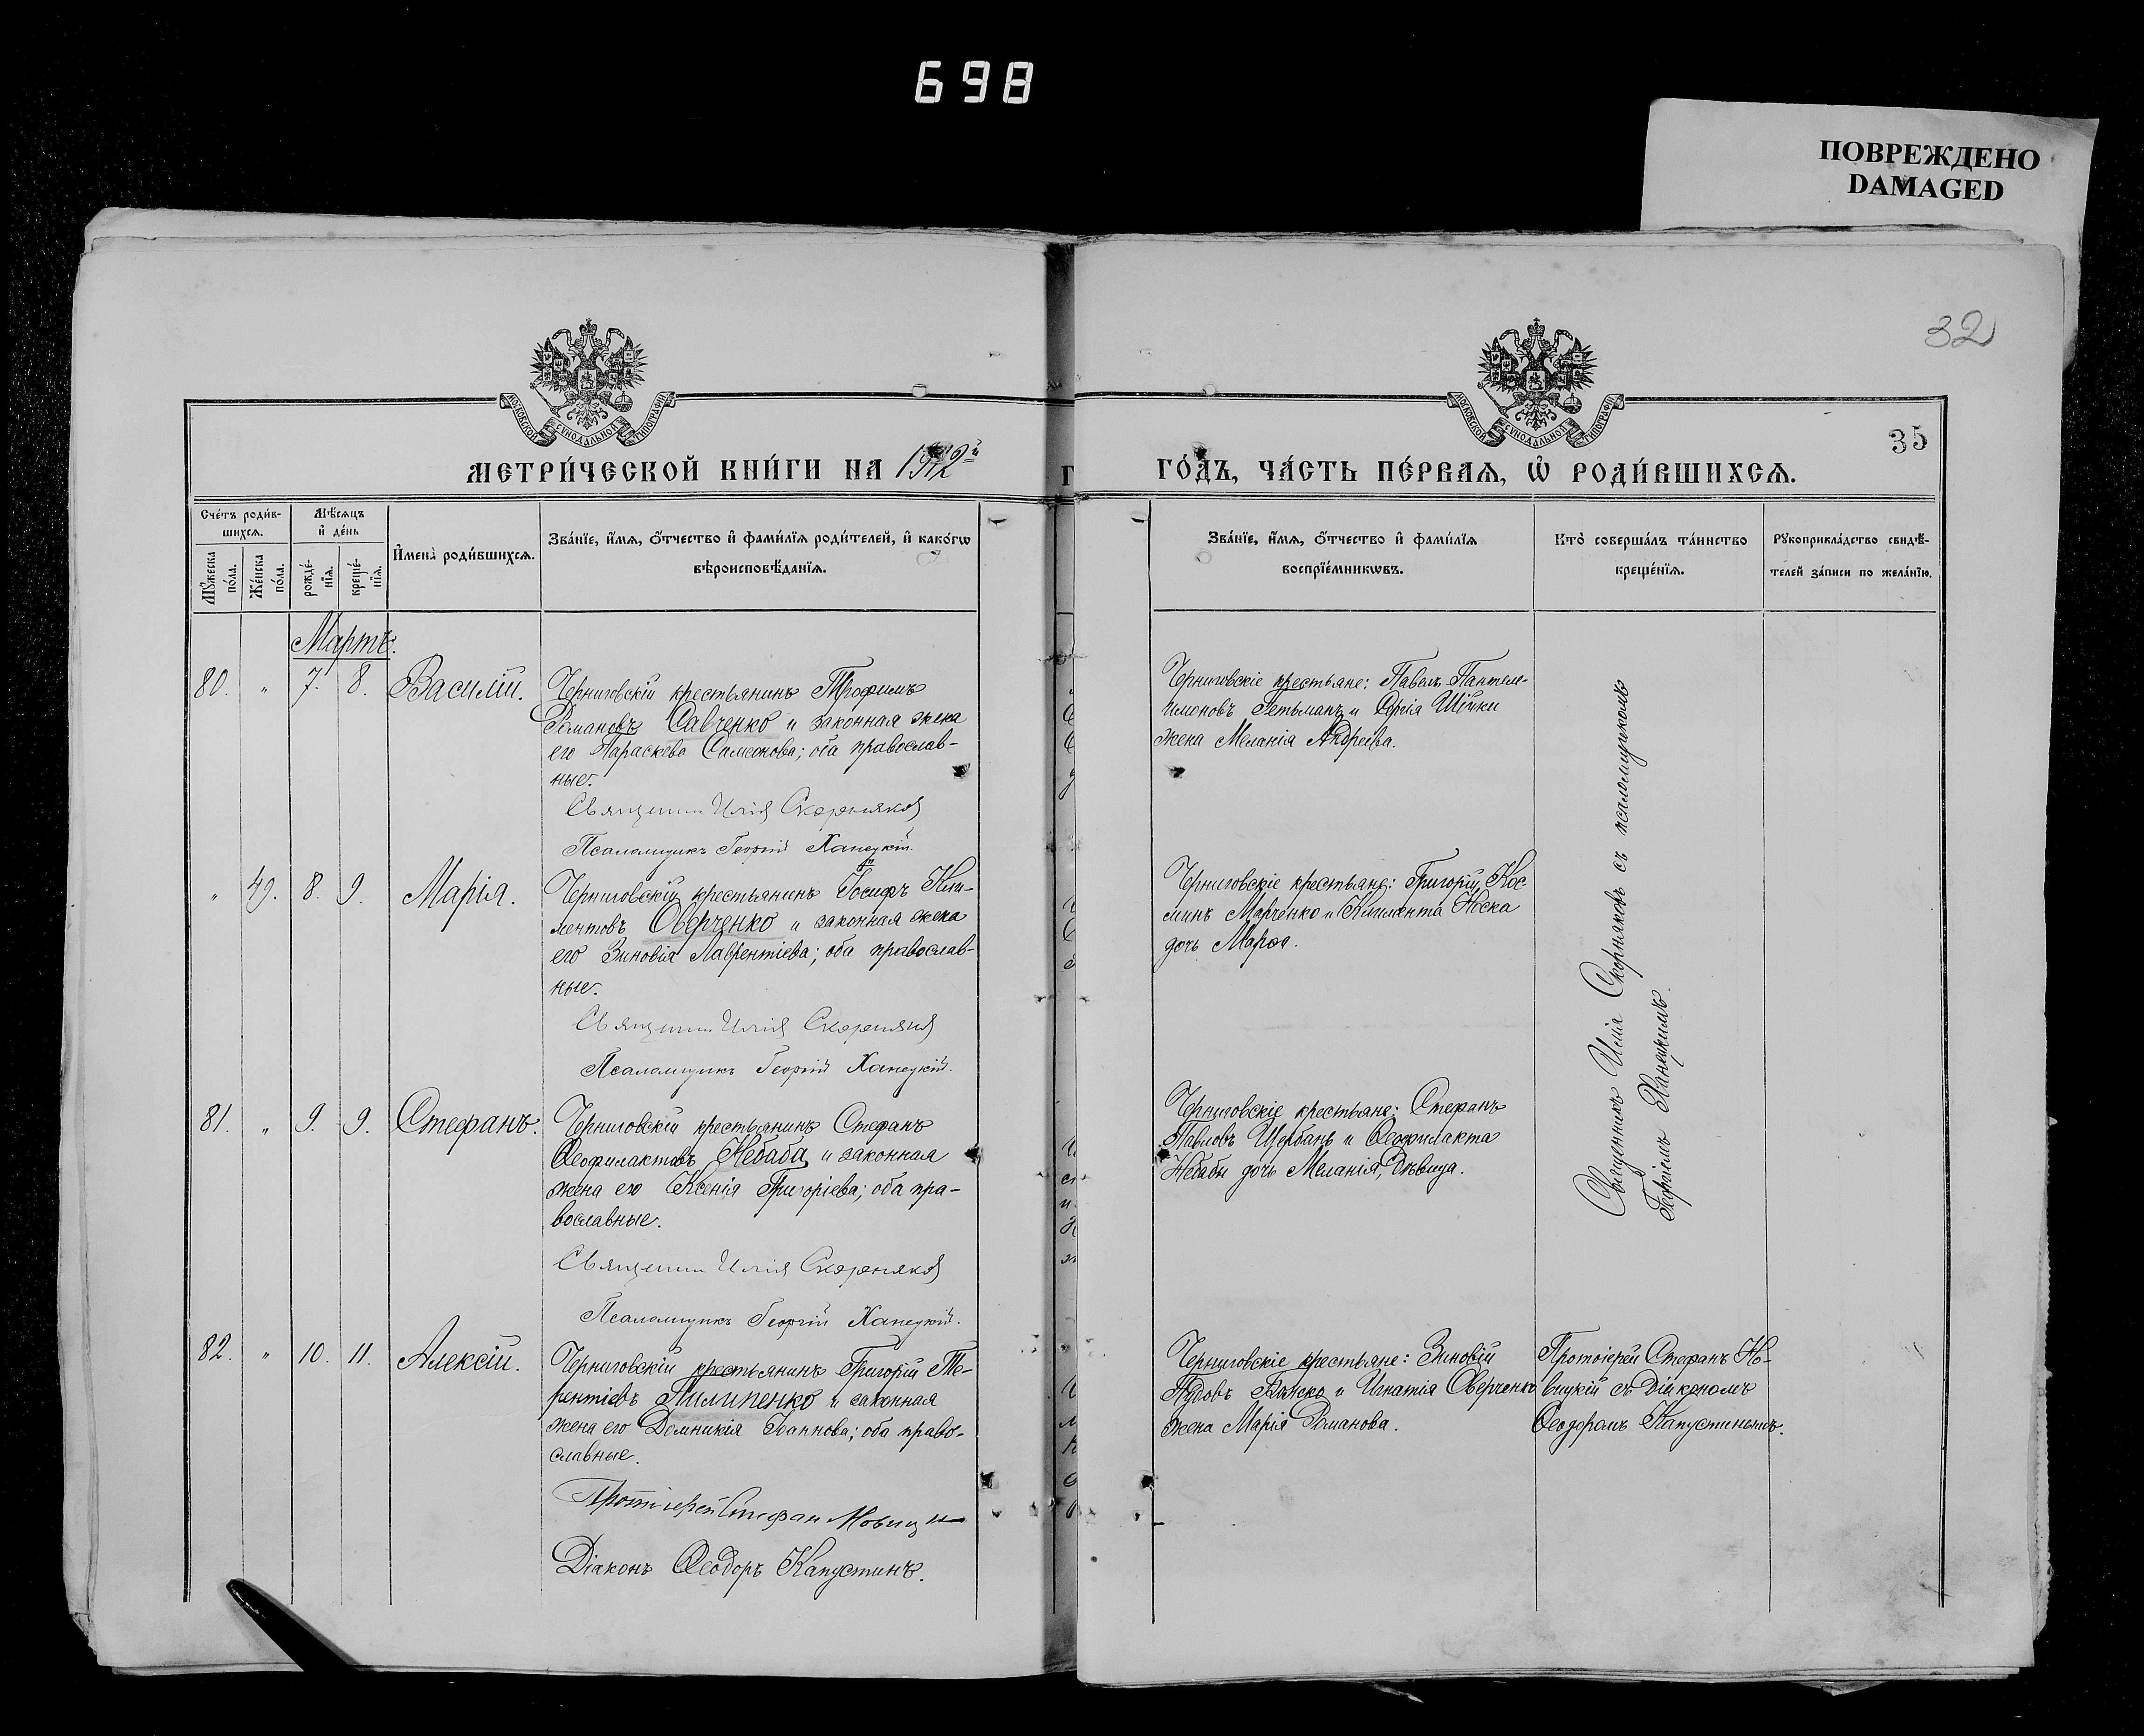 698
ПОВРЕЖДЕНО
DAMAGED
32
35
МОСКОВСКОЙ СѴНОДАЛЬНОЙ ТИПОГРАФІИ
МОСКОВСКОЙ СѴНОДАЛЬНОЙ ТИПОГРАФІИ
МЕТРИ́ЧЕСКОЙ КНИ́ГИ НА 1912й
ГО́ДЪ, ЧА́СТЬ ПЕ́РВАѦ, Ѡ҆ РОДИ́ВШИХСѦ.
Сче́тъ роди́в-
шихсѧ.
Мѣ́сѧцъ
и҆ де́нь
Мꙋ́жеска по́ла.
Же́нска по́ла.
рожде́-
нїѧ.
креще́-
нїѧ.
И҆мена̀ роди́вшихсѧ.
Зва́нїе, и҆́мѧ, ѻ҆́тчество и҆ фами́лїѧ роди́телей, и҆ како́гѡ
вѣроисповѣ́данїѧ.
Зва́нїе, и҆́мѧ, ѻ҆́тчество и҆ фами́лїѧ
воспрїе́мникѡвъ.
Кто̀ соверша́лъ та́инство
креще́нїѧ.
Рꙋкоприкла́дство свидѣ́-
телей за́писи по жела́нїю.
Мартъ.
80. " 7. 8. Василій.
Черниговскій крестьянинъ Трофимъ
Романовъ Савченко и законная жена
его Параскева Самсонова; оба православ-
ные.
Священник Илія Скорняков
Псаломщикъ Георгій Ханецкій.
Черниговскіе крестьяне: Павелъ Пантеле-
имоновъ Гетьманъ и Сергія Шійки
жена Меланія Андреева.
Священникъ Илія Скорняковъ съ псаломщикомъ
Георгіемъ Ханецкимъ.
" 49. 8. 9. Марія.
Черниговскій крестьянинъ Іосифъ Кли-
ментовъ Оверченко и законная жена
его Зиновія Лаврентіева; оба православ-
ные.
Священник Илія Скорняков
Псаломщикъ Георгій Ханецкій.
Черниговскіе крестьяне: Григорій Кос-
минъ Марченко и Климента Носка
дочь Марѳа.
81. " 9. 9. Стефанъ.
Черниговскій крестьянинъ Стефанъ
Ѳеофилактовъ Небаба и законная
жена его Ксенія Григоріева; оба пра-
вославные.
Священник Илія Скорняков
Псаломщикъ Георгій Ханецкій.
Черниговскіе крестьяне: Стефанъ
Павловъ Щербань и Ѳеофилакта
Небабы дочь Меланія, дѣвица.
82. " 10. 11. Алексій.
Черниговскій крестьянинъ Григорій Те-
рентіевъ Пилипенко и законная
жена его Домникія Іоаннова; оба право-
славные.
Протоіерей Стефан Новицкій
Діаконъ Ѳеодоръ Капустинъ.
Черниговскіе крестьяне: Зиновій
Пудовъ и Игнатія Оверченко
жена Марія Романова.
Протоіерей Стефанъ Но-
вицкій съ Діакономъ
Ѳеодоромъ Капустинымъ.